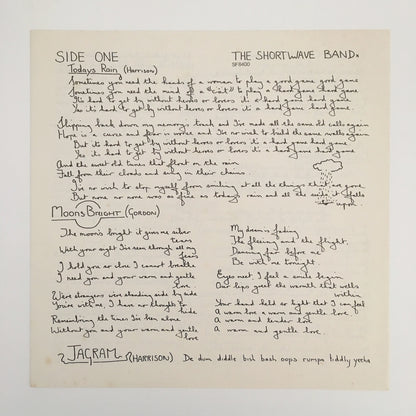 SIDE ONE
THE SHORTWAVE BAND.
SFB400
Todays Rain (Harrison)
Sometimes you need the hands of a woman to play a good game good game
Sometimes you need the mind of a to play a hard game hard game
It's hard to get by without heroes or lovers it's a hard game hard game
Yes it's hard to get by without heroes or lovers it's a hard game hard game.
Slipping back down my memory's track and I've made all the same old calls again
Hope is a curse and fear is worse and I've no wish to build the same walls again
But it's hard to get by without heroes or lovers it's a hard game hard game
Yes it's hard to get by without heroes or lovers it's a hard game hard game
And the sweet old times that float on the rain
Fall from their clouds and only in their chains.
I've no wish to stop myself from smiling at all the things that are gone
But none no none was as fine as todays rain and all the smile it falls upon
MOONS BRIGHT (GORDON)
The moon's bright it gives me silver
tears
With your sight I've seen through all my
fears
I hold you so close I cannot breathe
I need you and your warm and gentle
love
Were strangers were standing side by side
You're with me, I have no thoughts to
hide
Remembering the times I've been alone
Without you and your warm and gentle
love
My dreams fading
The fleeing and the flight.
Dancing far before me
Be with me tonight.
Eyes meet, I feel a smile begin
Our lips greet the warmth that wells
within
Your hand held so tight that I can feel
A warm love a warm and gentle love
A warm and tender love
A warm and gentle love.
JAGRAM (HARRISON) De dum diddle bish bash oops rumpa biddly yeeha